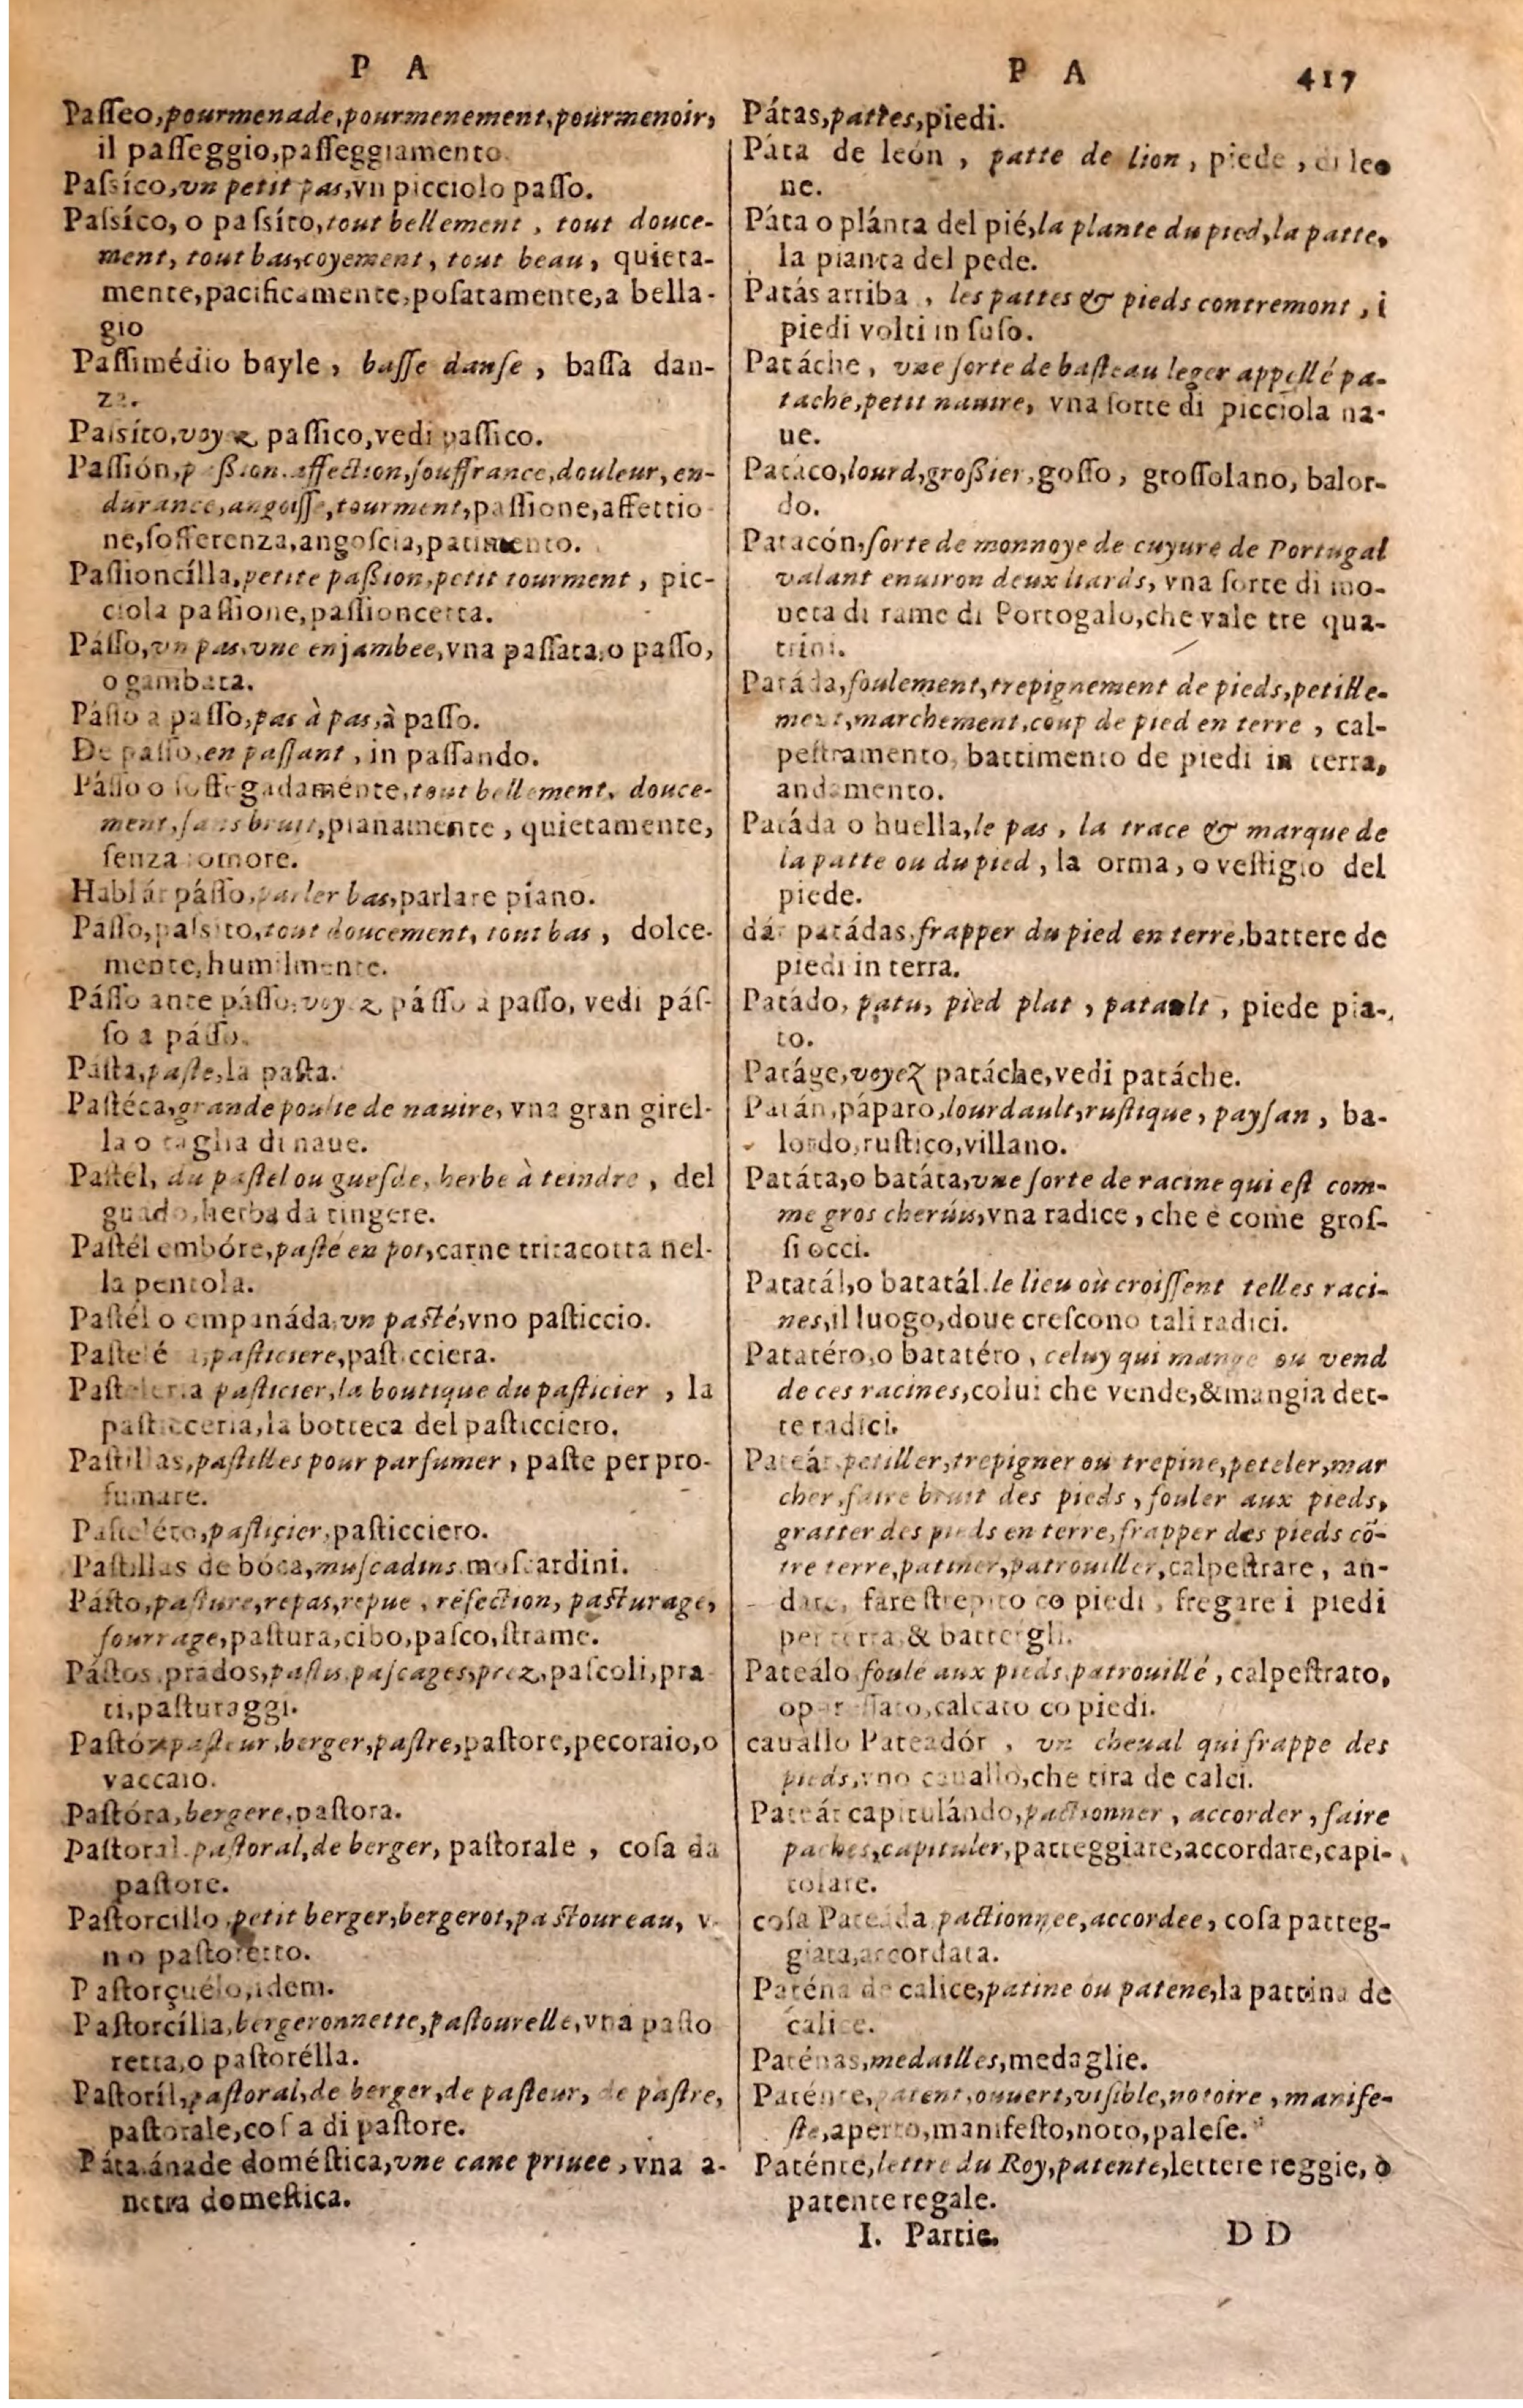 P A
Paſſeo, pourmenade, pourmenement, pourmenoir,
il paſſeggio, paſſeggiamento.
Paſsíco, vn petit pas, vn picciolo paſſo.
Paſsíco, o paſsíto, tout bellement, tout douce-
ment, tout bas, coyement, tout beau, quieta-
mente, pacificamente, poſatamente, a bella-
gio
Paſſimédio bayle, baſſe danſe, baſſa dan-
za.
Paſsíto, voyez paſſico, vedi paſſico.
Paſſión, paßion, affection, ſouffrance, douleur, en-
durance, angoiſſe, tourment, paſſione, affettio
ne, ſofferenza, angoſcia, patimento.
Paſſioncílla, petite paßion, petit tourment, pic-
ciola paſſione, paſſioncetta.
Páſſo, vn pas, vne enjambee, vna paſſata, o paſſo,
o gambata.
Páſſo a paſſo, pas à pas, à paſſo.
De paſſo, en paſſant, in paſſando.
Páſſo o ſoſſegadaménte, tout bellement, douce-
ment, ſans bruit, pianamente, quietamente,
ſenza romore.
Hablár páſſo, parler bas, parlare piano.
Paſſo, paſsito, tout doucement, tout bas, dolce-
mente, humilmente.
Páſſo ante páſſo, voyez páſſo a paſſo, vedi páſ-
ſo a páſſo.
Páſta, paſte, la paſta.
Paſtéca, grande poulie de nauire, vna gran girel-
la o taglia di naue.
Paſtel, du paſtel ou gueſde, herbe à teindre, del
guado, herba da tingere.
Paſtél embóte, paſté en pot, carne trita cotta nel-
la pentola.
Paſtél o empanáda, vn paſté, vno paſticcio.
Paſteléra, paſticiere, paſticciera.
Paſteleria paſticier, la boutique du paſticier, la
paſticceria, la botteca del paſticciero.
Paſtillas, paſtilles pour parfumer, paſte per pro-
fumare.
Paſteléro, paſticier, paſticciero.
Paſtillas de bóca, muſcadins moſcardini.
Páſto, paſture, repas, repue, refection, paſturage,
fourrage, paſtura, cibo, paſco, ſtrame.
Páſtos, prados, paſtis, paſcages, prez, paſcoli, pra
ti, paſturaggi.
Paſtór, paſteur, berger, paſtre, paſtore, pecoraio, o
vaccaio.
Paſtóra, bergere, paſtora.
Paſtoral, paſtoral, de berger, paſtorale, coſa da
paſtore.
Paſtorcillo, petit berger, bergerot, paſtoureau, v
no paſtoretto.
Paſtorçuélo, idem.
Paſtorcílla, bergeronnette, paſtourelle, vna paſto
retta, o paſtorélla.
Paſtoríl, paſtoral, de berger, de paſteur, de paſtre,
paſtorale, coſa di paſtore.
Páta ánade doméſtica, vne cane priuee, vna a-
netra domeſtica.
P A 417
Pátas, pattes, piedi.
Páta de león, patte de lion, piede, di leo
ne.
Páta o plánta del pié, la plante du pied, la patte,
la pianta del pede.
Patás arriba, les pattes & pieds contremont, i
piedi volti in ſuſo.
Patáche, vne ſorte de baſteau leger appellé pa-
tache, petit nauire, vna ſorte di picciola na-
ue.
Patáco, lourd, großier, goſſo, groſſolano, balor-
do.
Patacón, ſorte de monnoye de cuyure de Portugal
valant enuiron deux liards, vna ſorte di mo-
neta di rame di Portogalo, che vale tre qua-
trini.
Patáda, foulement, trepignement de pieds, petille-
ment, marchement, coup de pied en terre, cal-
peſtramento, battimento de piedi in terra,
andamento.
Patáda o huella, le pas, la trace & marque de
la patte ou du pied, la orma, o veſtigio del
piede.
dár patádas, frapper du pied en terre, battere de
piedi in terra.
Patádo, patu, pied plat, patault, piede pia-
to.
Patáge, voyez patáche, vedi patáche.
Patán, páparo, lourdault, ruſtique, payſan, ba-
lordo, ruſtico, villano.
Patáta, o batáta, vne ſorte de racine qui eſt com-
me gros cherüis, vna radice, che è come groſ-
ſi occi.
Patatál, o batatál, le lieu où croiſſent telles raci-
nes, il luogo, doue creſcono tali radici.
Patatéro, o batatéro, celuy qui mange ou vend
de ces racines, colui che vende, & mangia det-
te radici.
Pateár, petiller, trepigner ou trepine, peteler, mar
cher, faire bruit des pieds, fouler aux pieds,
gratter des pieds en terre, frapper des pieds cõ-
tre terre, patiner, patrouiller, calpeſtrare, an-
dare, fare ſtrepito co piedi, fregare i piedi
per terra, & battergli.
Pateálo, foulé aux pieds, patrouillé, calpeſtrato,
calcato co piedi.
cauállo Pateadór, vn cheual qui frappe des
pieds, vno cauallo, che tira de calci.
Pateár capitulándo, pactionner, accorder, faire
paches, capituler, patteggiare, accordare, capi-
tolare.
coſa Pateáda pactionnee, accordee, coſa patteg-
giata, accordata.
Paténa de calice, patine ou patene, la pattina de
calice.
Paténas, medailles, medaglie.
Paténte, patent, ouuert, viſible, notoire, manife-
ſte, aperto, manifeſto, noto, paleſe.
Paténte, lettre du Roy, patente, lettere reggie, ò
patente regale.
I. Partie. D D